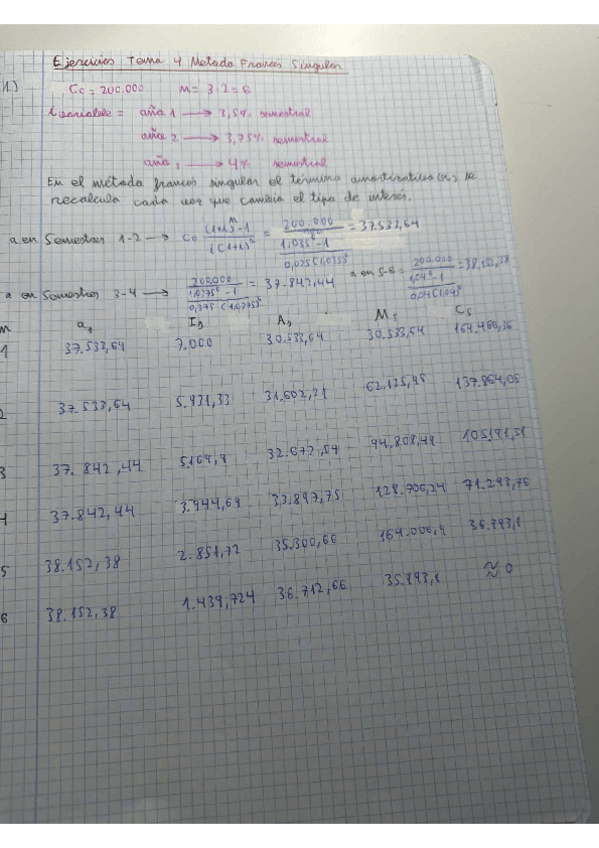 Ejercicios Tema 4 Metodo Frances Singular
1.) C0 = 200.000 M = 3·2 = 6
i variable = año 1 → 3,5% semestral
año 2 → 3,75% semestral
año 3 → 4% semestral
En el método frances singular el término amortizativo (as) se
recalcula cada vez que cambia el tipo de interés.
a en Semestres 1-2 → C0 (1+i)^n - 1 / i(1+i)^6 = 200.000 / (1,035^6 - 1 / 0,035(1,035)^6) = 37.533,64
a en Semestres 3-4 → 200.000 / (1,0375^6 - 1 / 0,375(1,0375)^6) = 37.842,44 a en 5-6 = 200.000 / (1,04^6 - 1 / 0,04(1,04)^6) = 38.152,38
n as Is As Ms Cs
1 37.533,64 7.000 30.533,64 30.533,64 169.466,36
2 37.533,64 5.931,33 31.602,31 62.135,95 137.864,05
3 37.842,44 5.169,9 32.672,54 94.808,49 105.191,51
4 37.842,44 3.944,69 33.897,75 128.706,24 71.293,76
5 38.152,38 2.851,72 35.300,66 164.006,9 36.793,1
6 38.152,38 1.439,724 36.712,66 35.893,1 ≈ 0